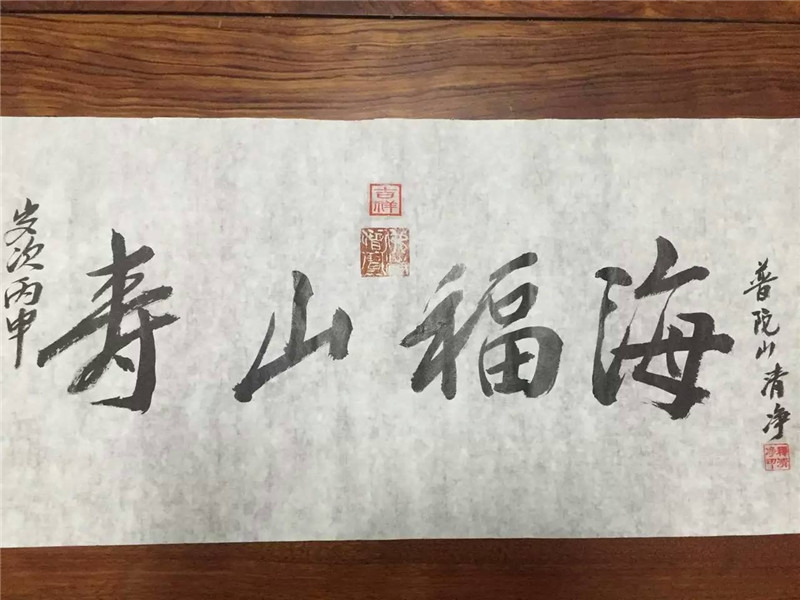 普陀山清净
海福山寿
岁次丙申
吉祥